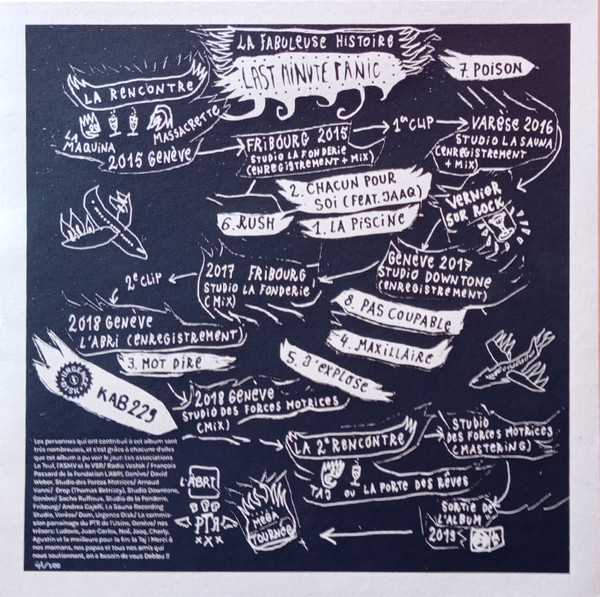 LA FABULEUSE HISTOIRE
LAST MINUTE PANIC
7. POISON
LA RENCONTRE
LA MAQUINA
MASSACRETTE
2015 GENÈVE
FRIBOURG 2015
STUDIO LA FONDERIE
(ENREGISTREMENT + MIX)
1er CLIP
VARÈSE 2016
STUDIO LA SAUNA
(ENREGISTREMENT
+ MIX)
2. CHACUN POUR
SOI (FEAT. JAAQ)
6. RUSH
1. LA PISCINE
VERNIER
SUR ROCK
GENÈVE 2017
STUDIO DOWNTONE
(ENREGISTREMENT)
2017 FRIBOURG
STUDIO LA FONDERIE
(MIX)
2e CLIP
8. PAS COUPABLE
2018 GENÈVE
L'ABRI (ENREGISTREMENT)
4. MAXILLAIRE
3. MOT DIRE
5. J'EXPLOSE
URGENCE DISK
KAB229
2018 GENÈVE
STUDIO DES FORCES MOTRICES
(MIX)
LA 2e RENCONTRE
STUDIO
DES FORCES MOTRICES
(MASTERING)
TAJ OU LA PORTE DES RÊVES
Les personnes qui ont contribué à cet album sont
très nombreuses, et c'est grâce à chacune d'elles
que cet album a pu voir le jour: Les associations
La Teuf, l'ASMV et le VSR/ Radio Vostok / François
Passard de la Fondation L'ABRI, Genève/ David
Weber, Studio des Forces Motrices/ Arnaud
Vanni/ Drop (Thomas Betrisey), Studio Downtone,
Genève/ Sacha Ruffieux, Studio de la Fonderie,
Fribourg/ Andrea Cajelli, La Sauna Recording
Studio, Varèse/ Dam, Urgence Disk/ La commis-
sion parrainage du PTR de l'Usine, Genève/ nos
trésors: Ludovic, Juan-Carlos, Noé, Jaaq, Charly,
Agustin et la meilleure pour la fin: la Taj ! Merci à
nos mamans, nos papas et tous nos amis qui
nous soutiennent, on a besoin de vous Debleu !!
L'ABRI
PTR
XXX
MEGA
TOURNÉE
SORTIE DE
L'ALBUM
2019